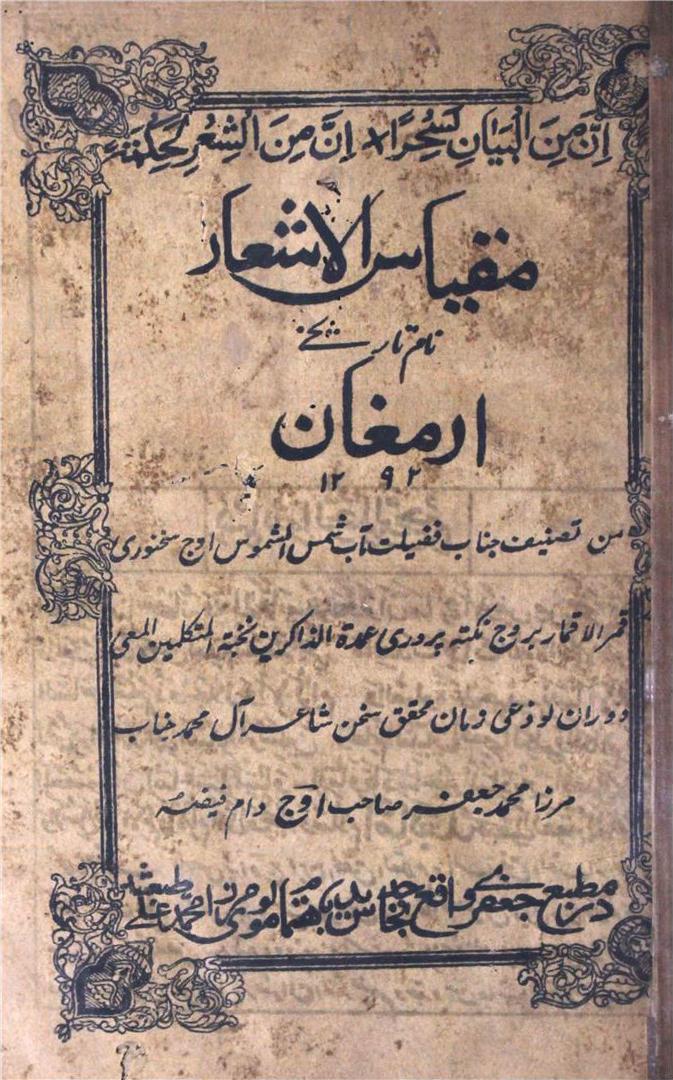 اِنَّ مِنَ الْبَیَانِ لَسِحْرًا ٭ اِنَّ مِنَ الشِّعْرِ لَحِکْمَۃً
مقیاس الاشعار
نام تاریخی
ارمغان
۱۲۹۲
من تصنیف جناب فضیلت مآب شمس الشموس اوج سخنوری
قمر الاقمار بروج نکتہ پروری عمدۃ الذاکرین نخبۃ المتکلمین المعی
دوران لوذعی زمان محقق سخن شاعر آل محمد جناب
مرزا محمد جعفر صاحب اوج دام فیضہ
در مطبع جعفری واقع نخاس جدید باہتمام مولوی مرزا محمد علی طبع شد